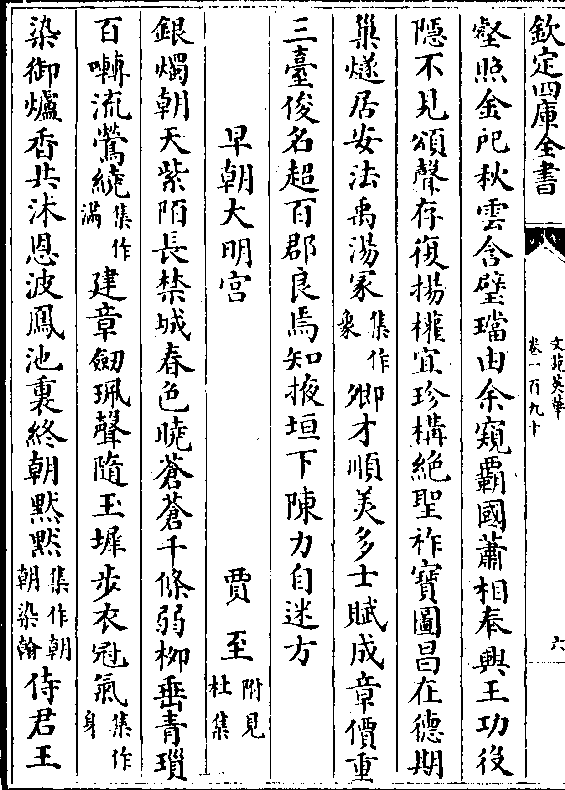 欽定四庫全書
文苑英華
卷一百九十
六
壑照金戺秋雲含璧璫由余窺霸國蕭相奉興王功役
隱不見頌聲存復揚權宜珍構絕聖祚寶圖昌在德期
巢燧居安法禹湯冢集作衆卿才順美多士賦成章價重
三臺俊名超百郡良焉知掖垣下陳力自迷方
早朝大明宮
賈至附見杜集
銀燭朝天紫陌長禁城春色曉蒼蒼千條弱栁垂青瑣
百囀流鶯繞集作滿建章劒珮聲隨玉墀步衣冠氣集作身
染御爐香共沐恩波鳳池裏終朝黙黙集作朝朝染翰侍君王